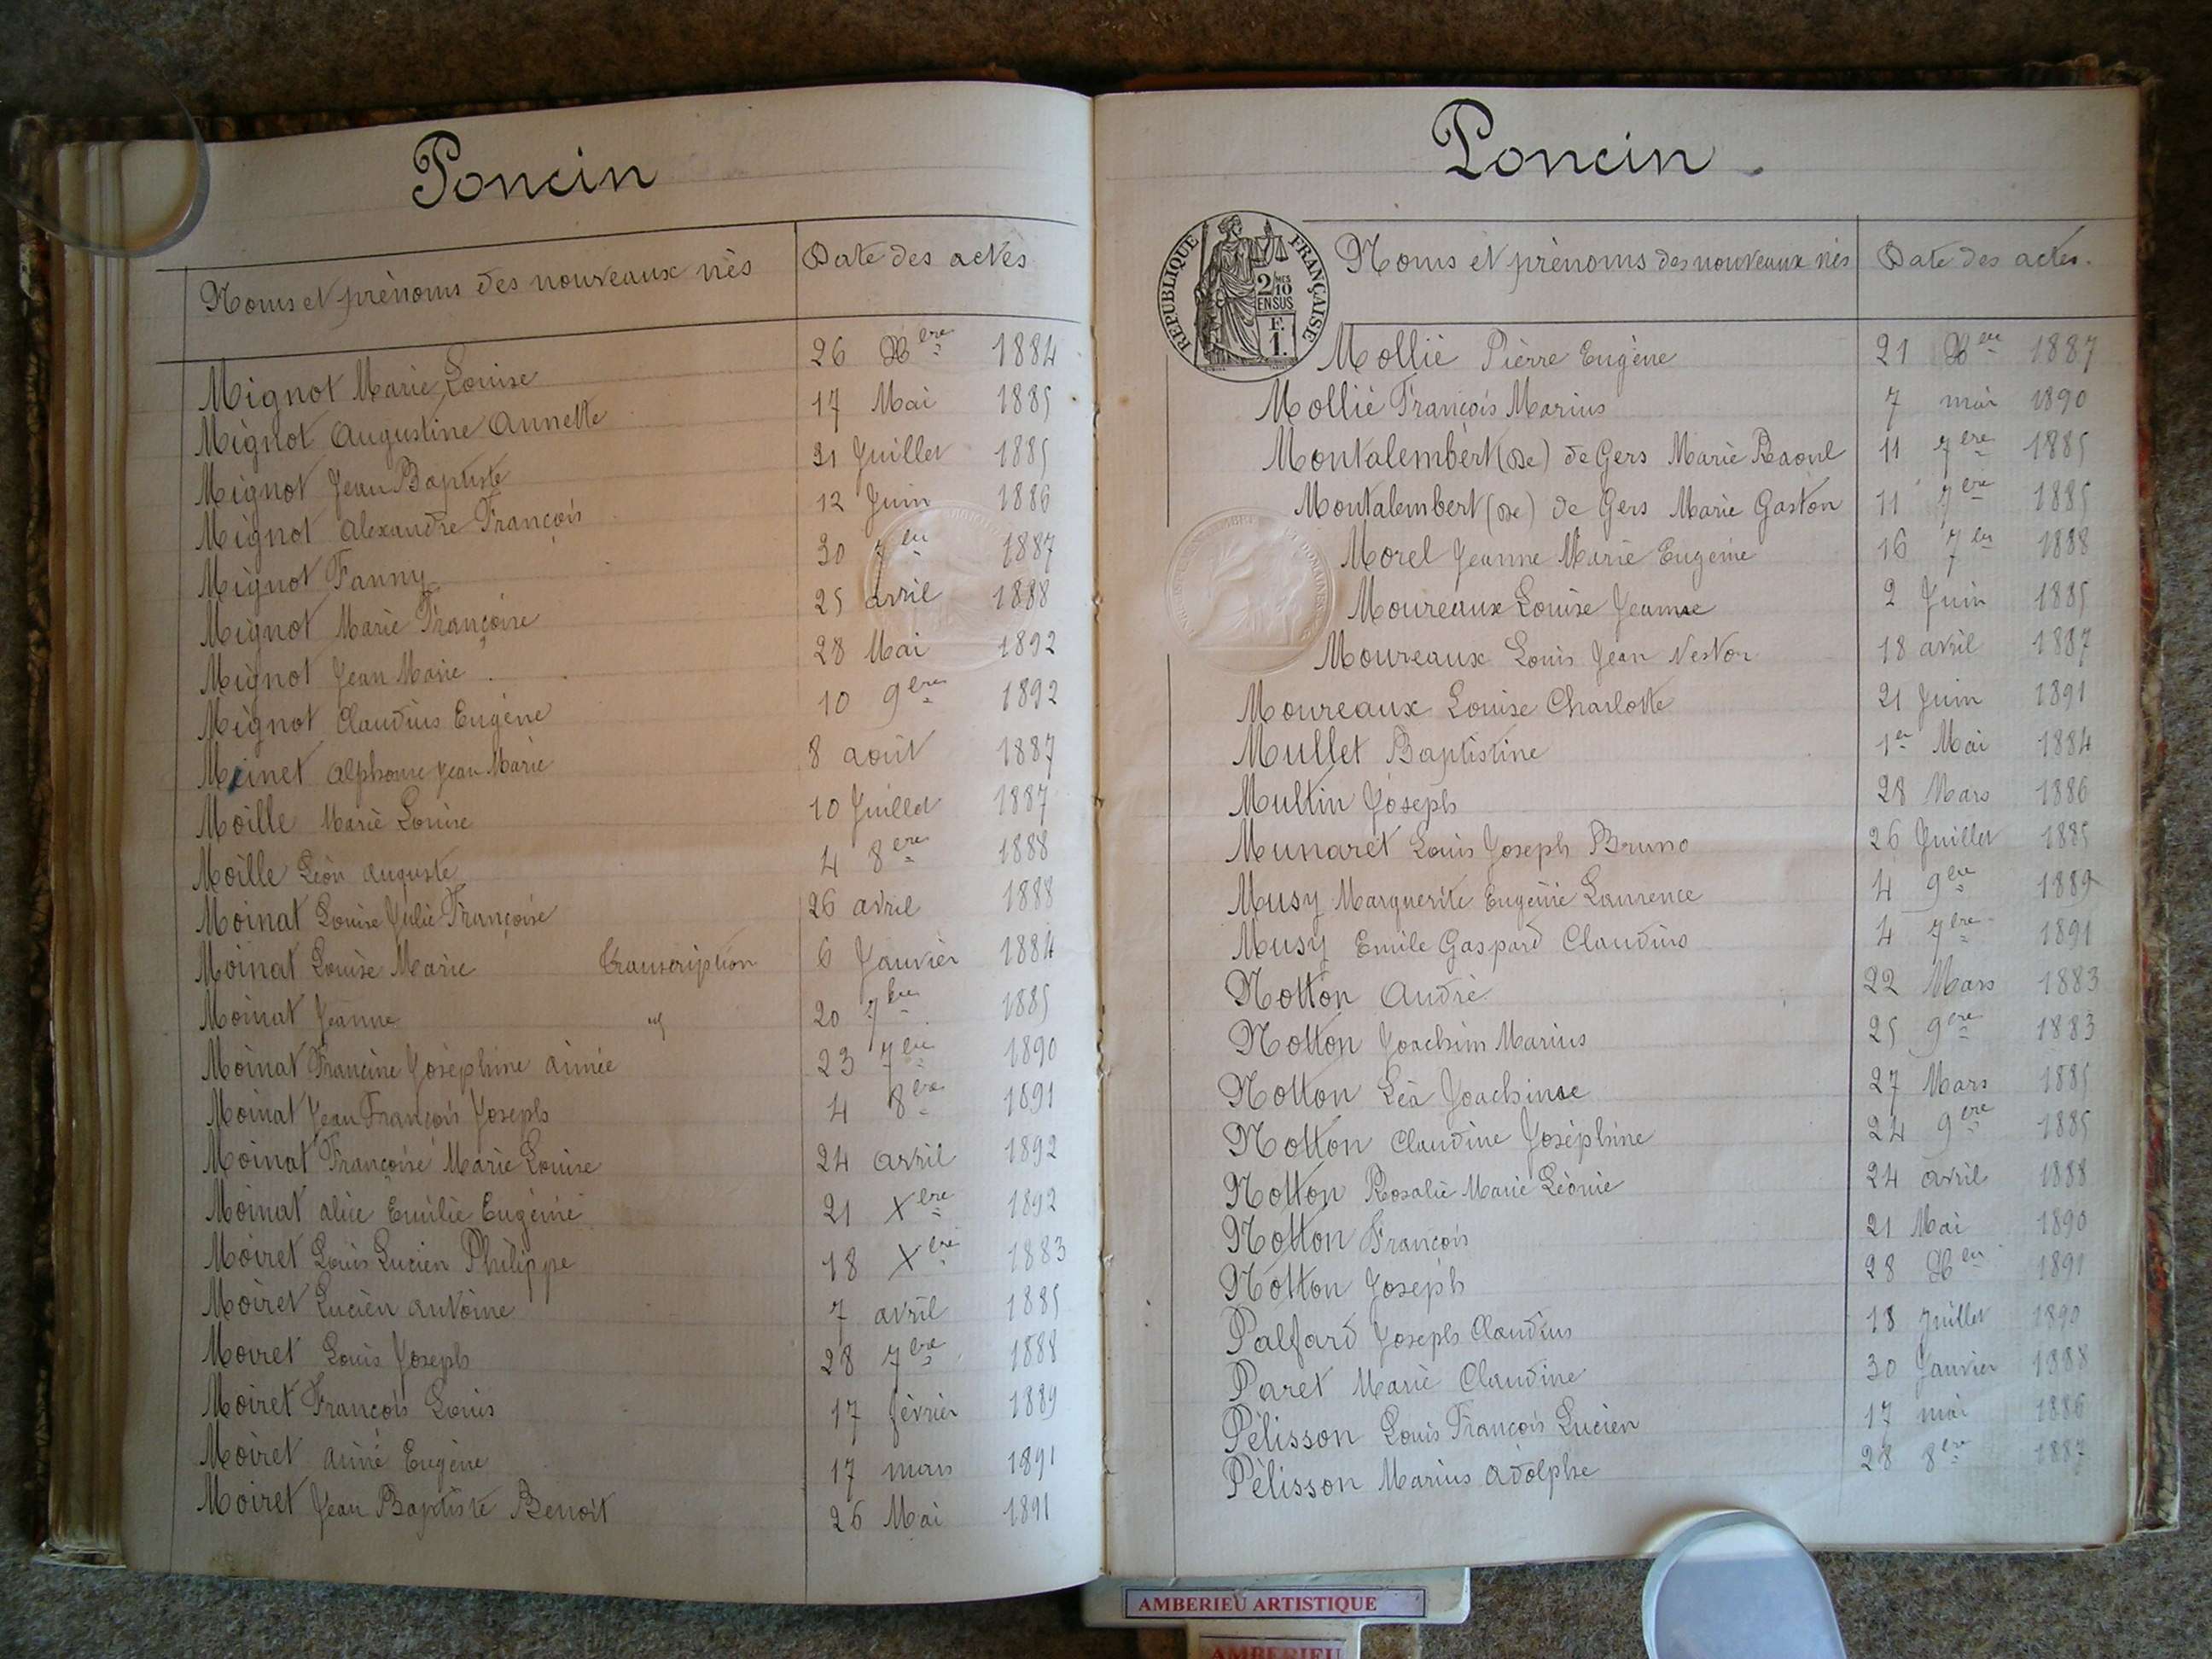 Poncin
Noms et prénoms des nouveaux nés Date des actes
Mignot Marie Louise 26 Xbre 1884
Mignot Augustine Annette 17 Mai 1885
Mignot Jean Baptiste 31 Juillet 1885
Mignot Alexandre François 12 Juin 1886
Mignot Fanny 30 7bre 1887
Mignot Marie Françoise 25 avril 1888
Mignot Jean Marie 28 Mai 1892
Mignot Claudius Eugène 10 9bre 1892
Alphonse Jean Marie 8 août 1887
Moille Marie Louise 10 Juillet 1887
Moille Léon Auguste 4 8bre 1888
Moinat Louise Julie Françoise 26 avril 1888
Moinat Louise Marie transcription 6 Janvier 1884
Moinat Jeanne 20 7bre 1885
Moinat Francine Joséphine Aimée 23 7bre 1890
Moinat Jean François Joseph 4 8bre 1891
Moinat Françoise Marie Louise 24 avril 1892
Moinat Alice Emilie Eugénie 21 Xbre 1892
Moiret Louis Lucien Philippe 18 Xbre 1883
Moiret Lucien Antoine 7 avril 1885
Moiret Louis Joseph 28 7bre 1888
Moiret François Louis 17 février 1889
Moiret Aimé Eugène 17 mars 1891
Moiret Jean Baptiste Benoit 26 Mai 1891
Poncin
REPUBLIQUE FRANÇAISE
2/10 EN SUS
F. 1.
Noms et prénoms des nouveaux nés Date des actes.
Mollié Pièrre Eugène 21 Xbre 1887
Mollié François Marius 7 mai 1890
Montalembert (De) de Gers Marie Raoul 11 7bre 1885
Montalembert (De) de Gers Marie Gaston 11 7bre 1885
Morel Jeanne Marie Eugénie 16 7bre 1888
Moureaux Louise Jeanne 2 Juin 1885
Moureaux Louis Jean Nestor 18 avril 1887
Moureaux Louise Charlotte 21 Juin 1891
Mullet Baptistine 1er Mai 1884
Multin Joseph 28 Mars 1886
Munaret Louis Joseph Bruno 26 Juillet 1885
Musy Marguerite Eugénie Laurence 4 9bre 1889
Musy Emile Gaspard Claudius 4 7bre 1891
Notton André 22 Mars 1883
Notton Joachim Marius 25 9bre 1883
Notton Léa Joachime 27 Mars 1885
Notton Claudine Joséphine 24 9bre 1885
Notton Rosalie Marie Léonie 24 avril 1888
Notton François 21 Mai 1890
Notton Joseph 28 Xbre 1891
Palfard Joseph Claudius 18 Juillet 1890
Paret Marie Claudine 30 Janvier 1888
Pélisson Louis François Lucien 17 mai 1886
Pélisson Marius Adolphe 28 8bre 1887
AMBERIEU ARTISTIQUE
AMBERIEU